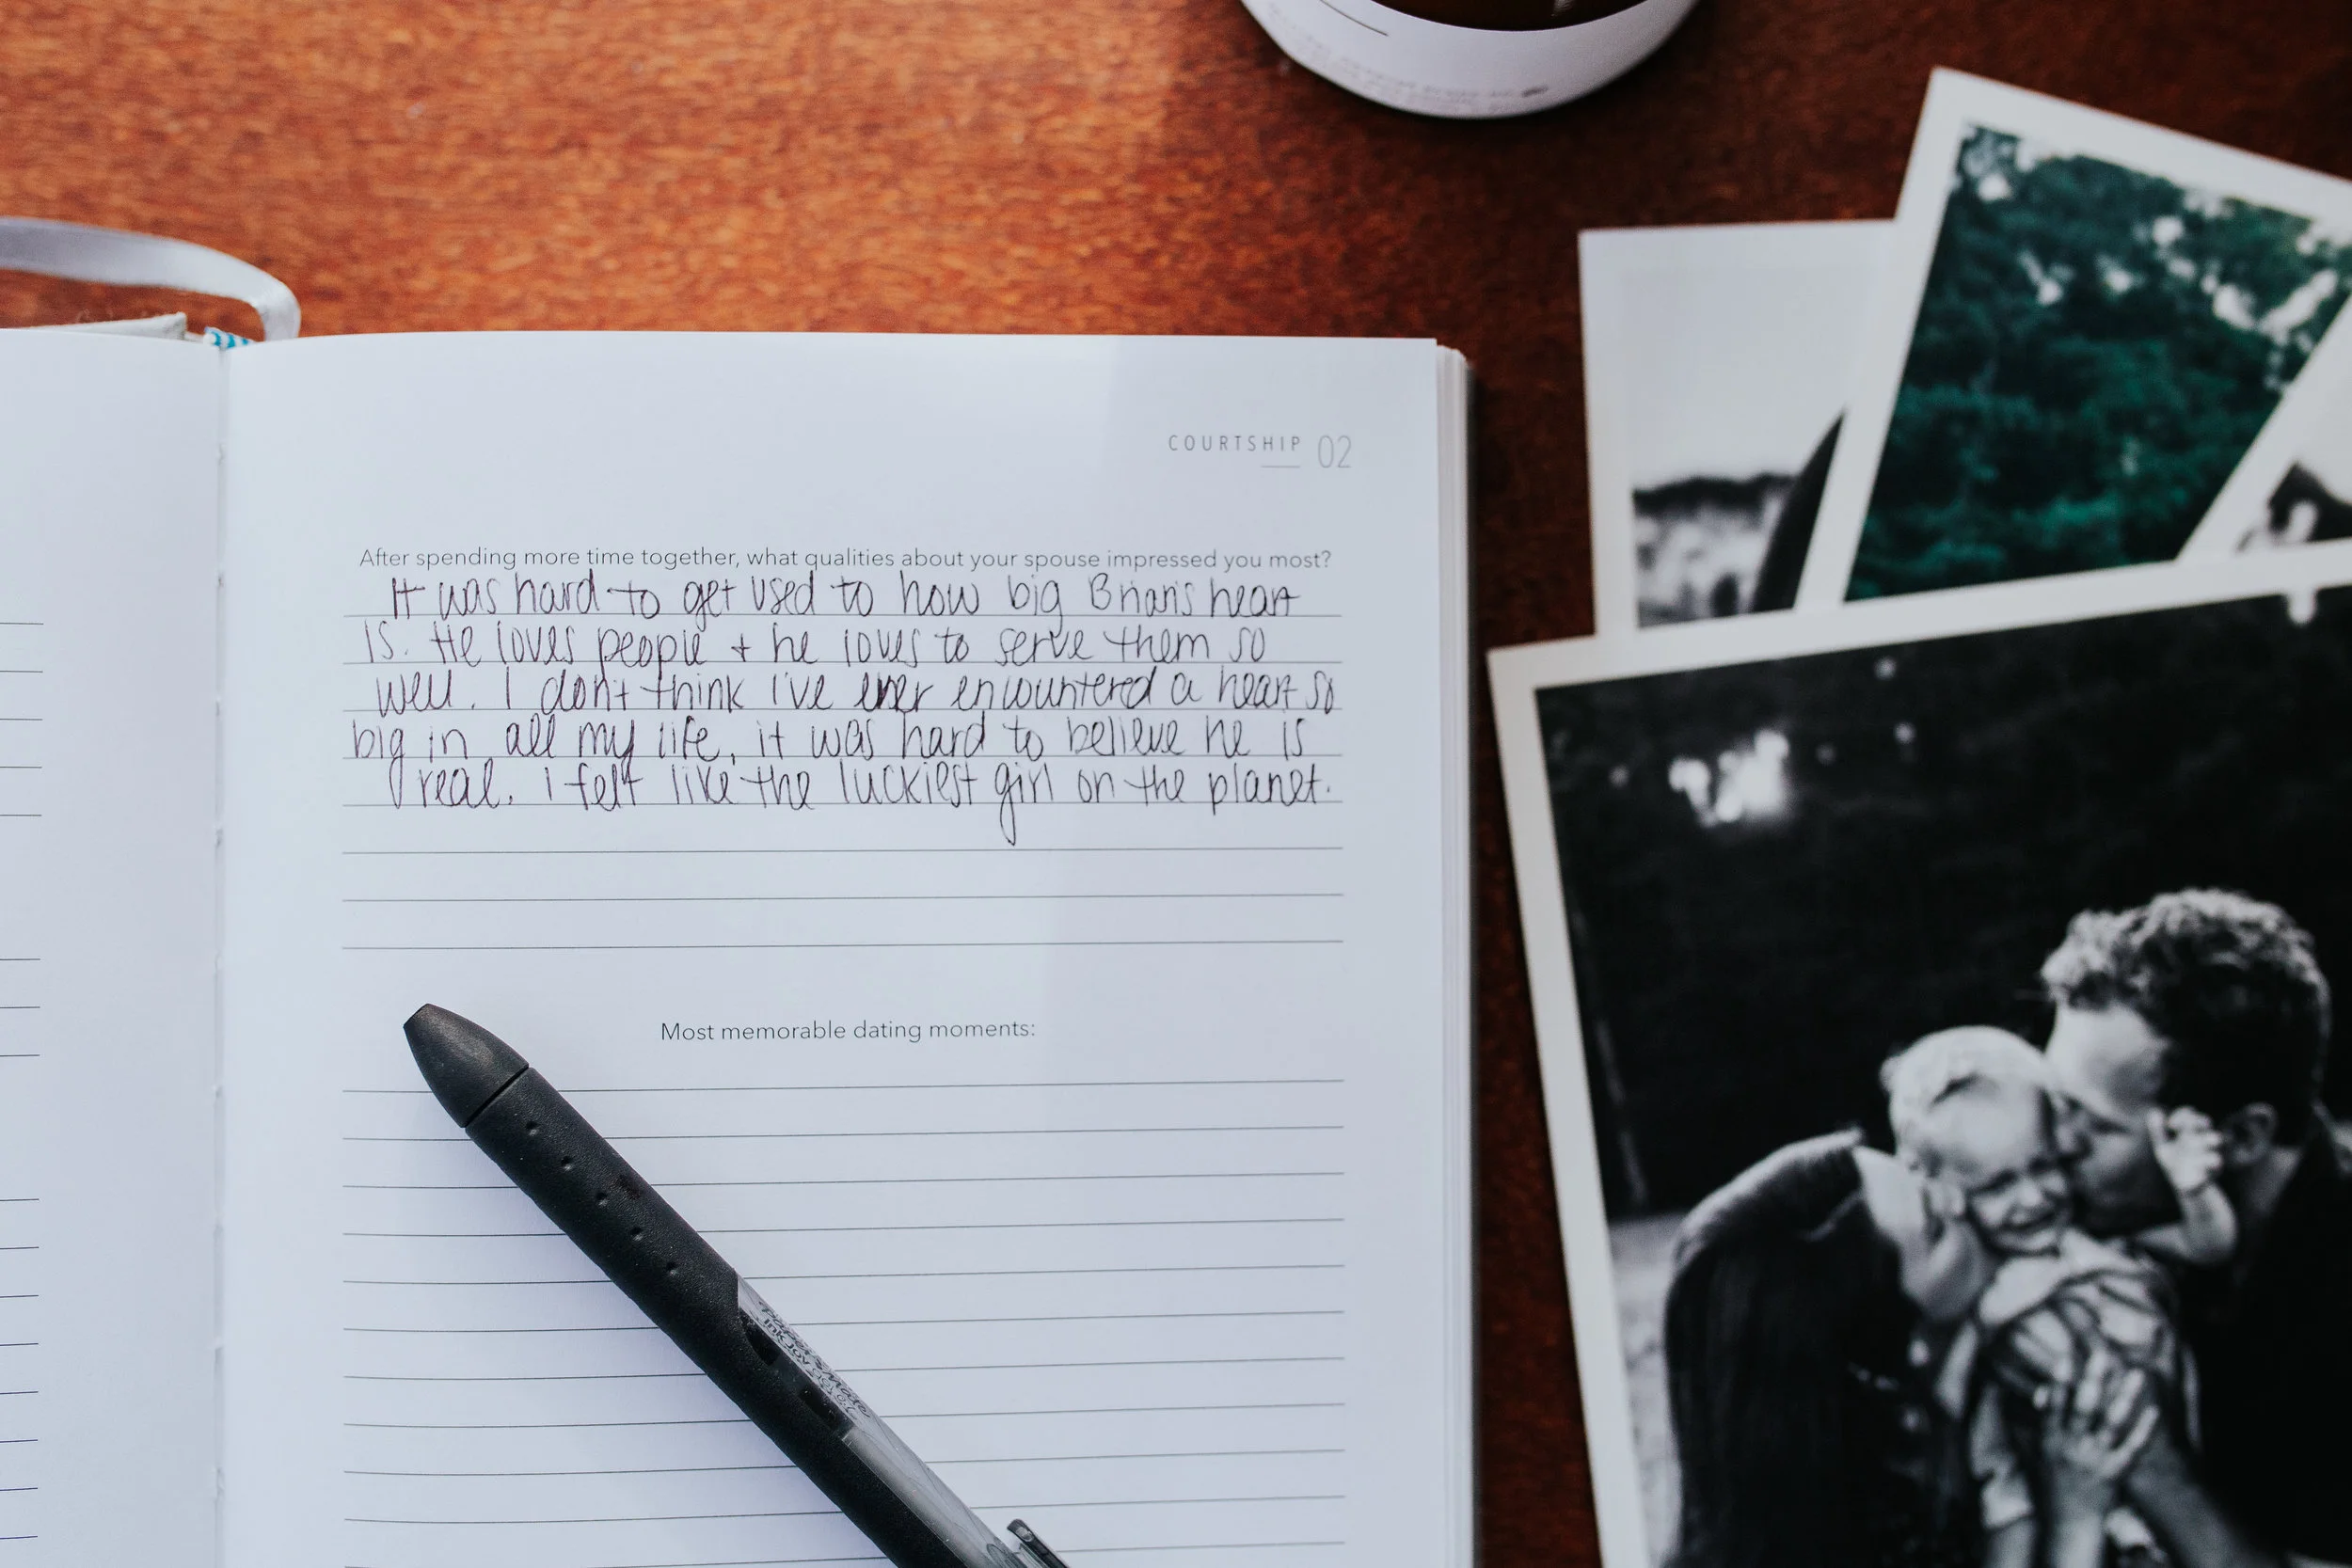 COURTSHIP 02
After spending more time together, what qualities about your spouse impressed you most?
It was hard to get used to how big Brian's heart
is. He loves people + he loves to serve them so
well. I don't think I've ever encountered a heart so
big in all my life, it was hard to believe he is
real. I felt like the luckiest girl on the planet.
Most memorable dating moments:
Paper Mate
InkJoy